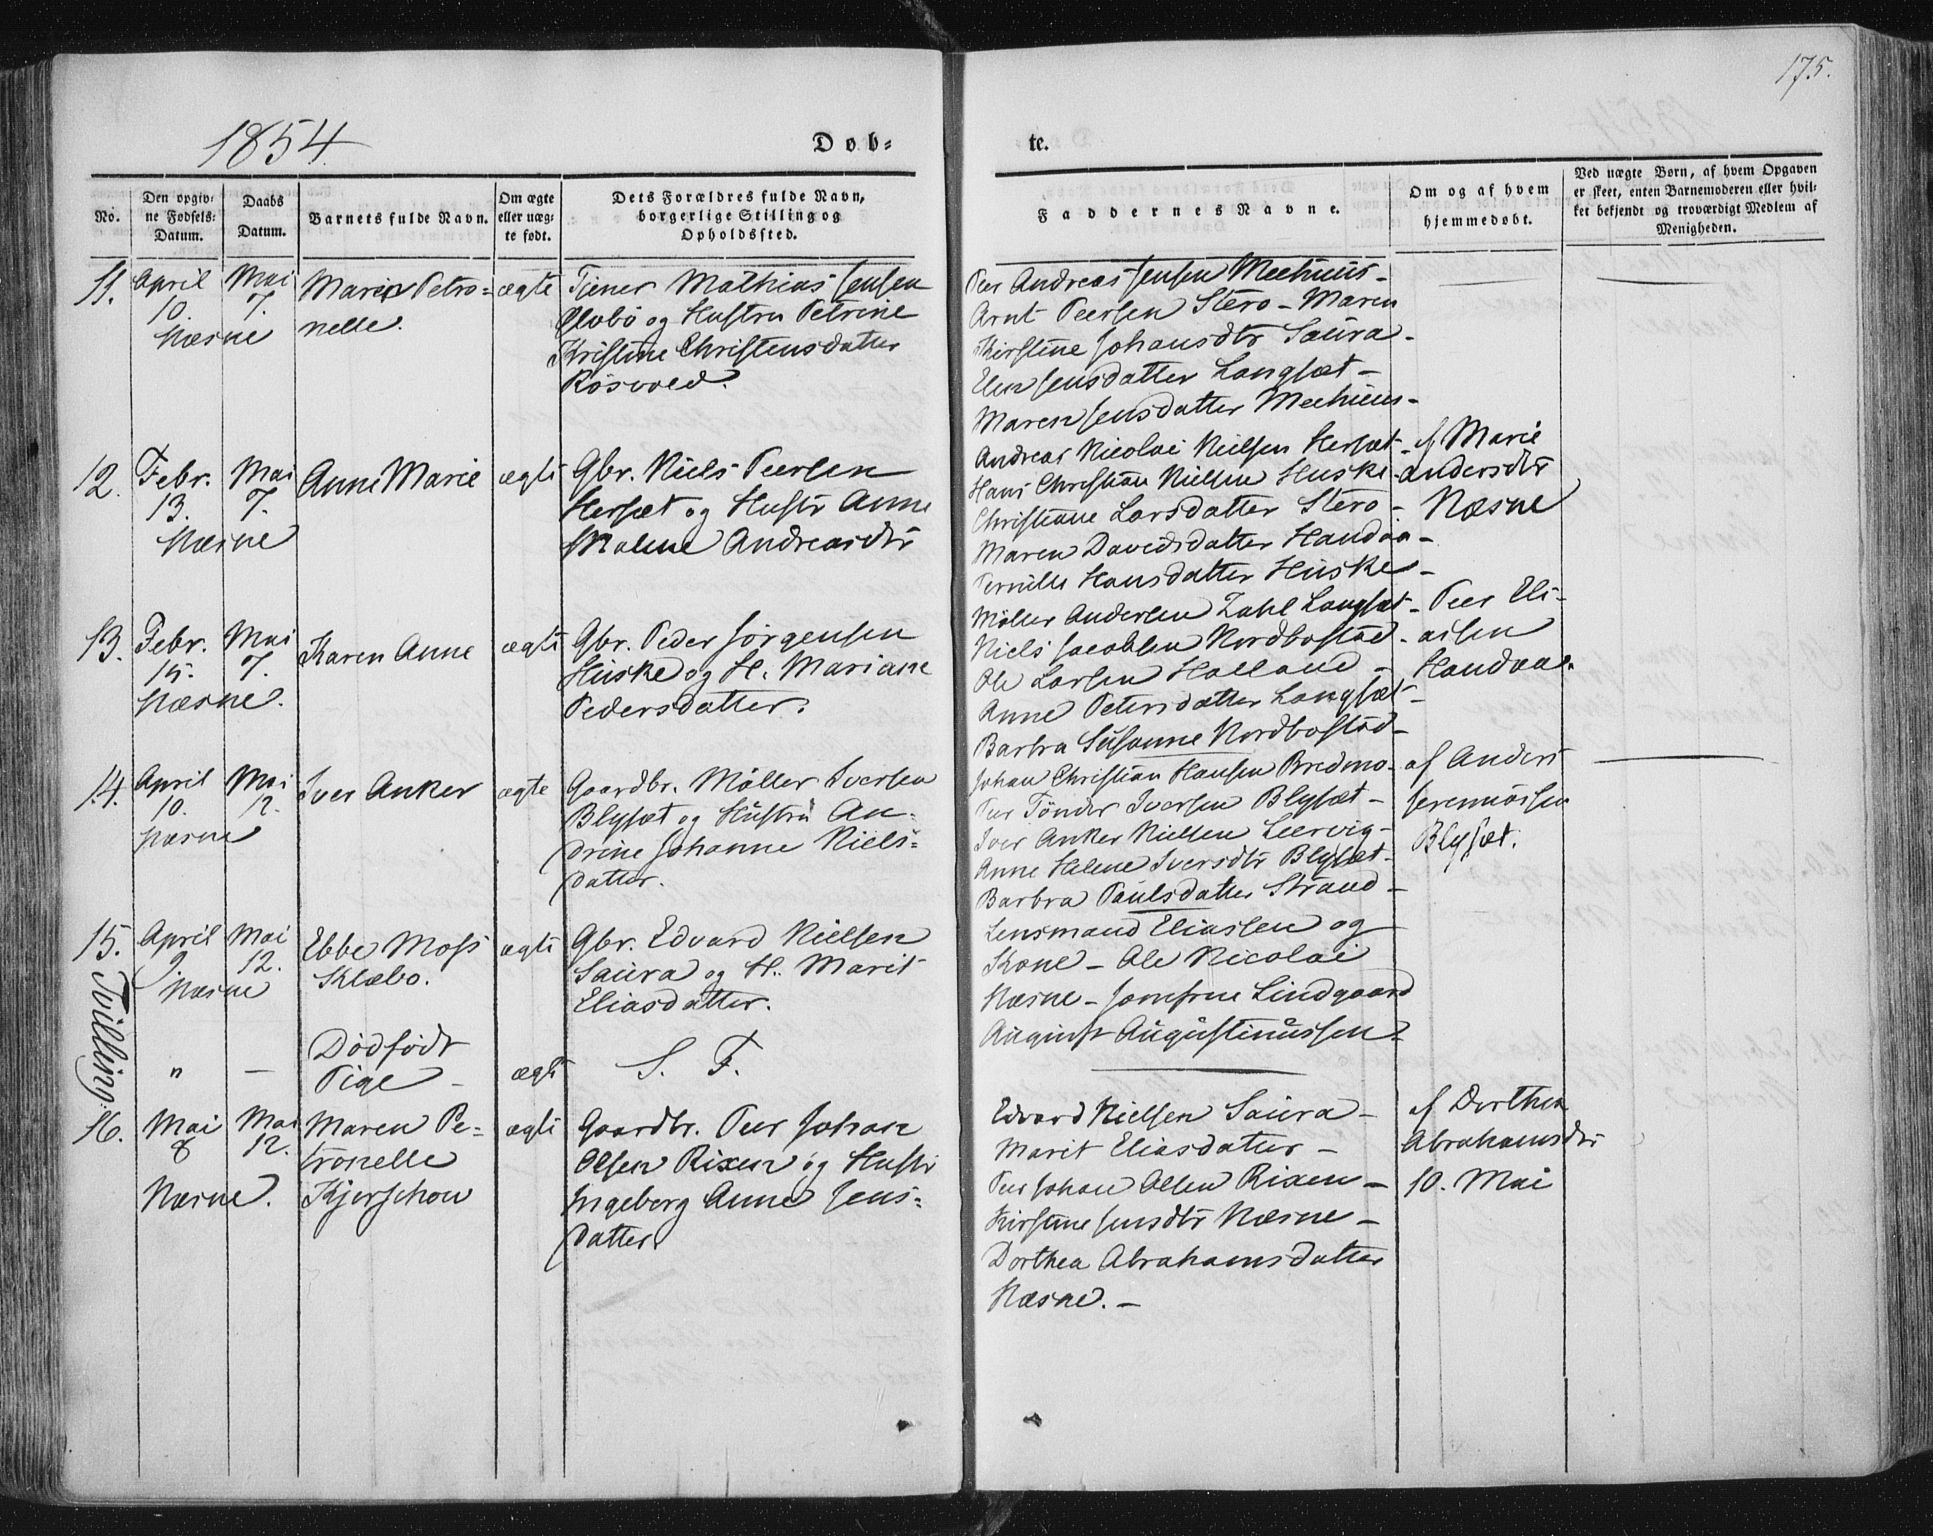 175.
1854
Døb=
te.
No.
Den opgiv-
ne Fødsels-
Datum.
Daabs
Datum.
Barnets fulde Navn.
Om ægte
eller uæg-
te født.
Dets Forældres fulde Navn,
borgerlige Stilling og
Opholdssted.
Faddernes Navne.
Om og af hvem
hjemmedøbt.
Ved uægte Børn, af hvem Opgaven
er skeet, enten Barnemoderen eller hvil-
ket bekjendt og troværdigt Medlem af
Menigheden.
11.
April
10.
Næsne
Mai
7.
Maren Petro=
nelle.
ægte
Tjener Mathias Jensen
og Hustru Petrine
Kristine Christensdatter
Røsvold.
Peer Andreas Jensen
Arnt Peersen Stero - Maren
Kirstine Johansdtr Saura -
Elen Jensdatter Langsæt -
Maren Jensdatter
12.
Febr.
13.
Næsne
Mai
7.
Anne Marie
ægte
Gbr. Niels Peersen
Hersæt og Hustr Anne
Malene Andreasdtr
Andreas Nicolai Nielsen Hersæt -
Hans Christian Nielsen Huske -
Christiane Larsdatter Stero -
Maren Davidsdatter Handaa -
Pernille Hansdatter Huske -
af Marie
Andersdtr
Næsne
13.
Febr.
15.
Næsne.
Mai
7.
Karen Anne
ægte
Gbr. Peder Jørgensen
Huske og H. Mariane
Pedersdatter.
Møller Andersen Zahl Langsæt -
Niels Jacobsen Nordbostad -
Ole Larsen Halland -
Anne Petersdatter Langsæt -
Barbra Susanne Nordbostad -
Peer Eli-
asen
Handaae.
14.
April
10.
Næsne
Mai
12.
Iver Anker
ægte
Gaardbr. Møller Iversen
Blysæt og Hustru An-
drine Johanne Niels=
datter.
Johan Christian Hansen Bredmo -
Peer Tønder Iversen Blysæt -
Iver Anker Nielsen Leervig -
Anne Helene Iversdtr Blysæt -
Barbra Paulsdatter Strand -
af Anders
Blysæt.
15.
April
9.
Næsne
Mai
12.
Ebbe Moss
Klæbo.
ægte
Gbr. Edvard Nielsen
Saura og H. Marit
Eliasdatter.
Lensmand Eliassen og
Kone - Ole Nicolai
Næsne - Jomfrue Lindgaard
August Augustinussen -
Tvilling
" -
Dødfødt
Pige -
ægte
S. F.
16.
Mai
8
Næsne.
Mai
12.
Maren Pe=
tronelle
Kjerschow
ægte
Gaardbr. Peer Johan
Olsen Rixen og Hustr
Ingeberg Anne Jens=
datter.
Edvard Nielsen Saura -
Marit Eliasdatter -
Peer Johan Olsen Rixen -
Kirstine Jensdtr Næsne -
Dorthea Abrahamsdatter
Næsne. -
af Dorthea
Abrahamsdtr
10. Mai